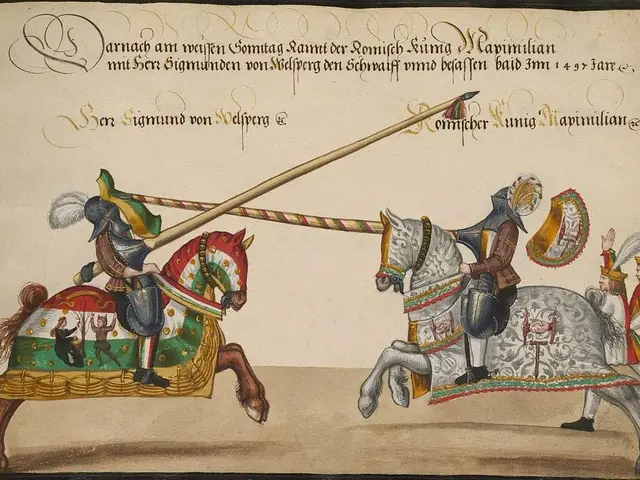 Darnach am weissen Sonntag Rannt der Romisch Kunig Maximilian
mit Herr Sigmunden von Welsperg den Schwaiff vnnd besassen baid Inn 1497 Jare
Herr Sigmund von Welsperg
Romischer Kunig Maximilian